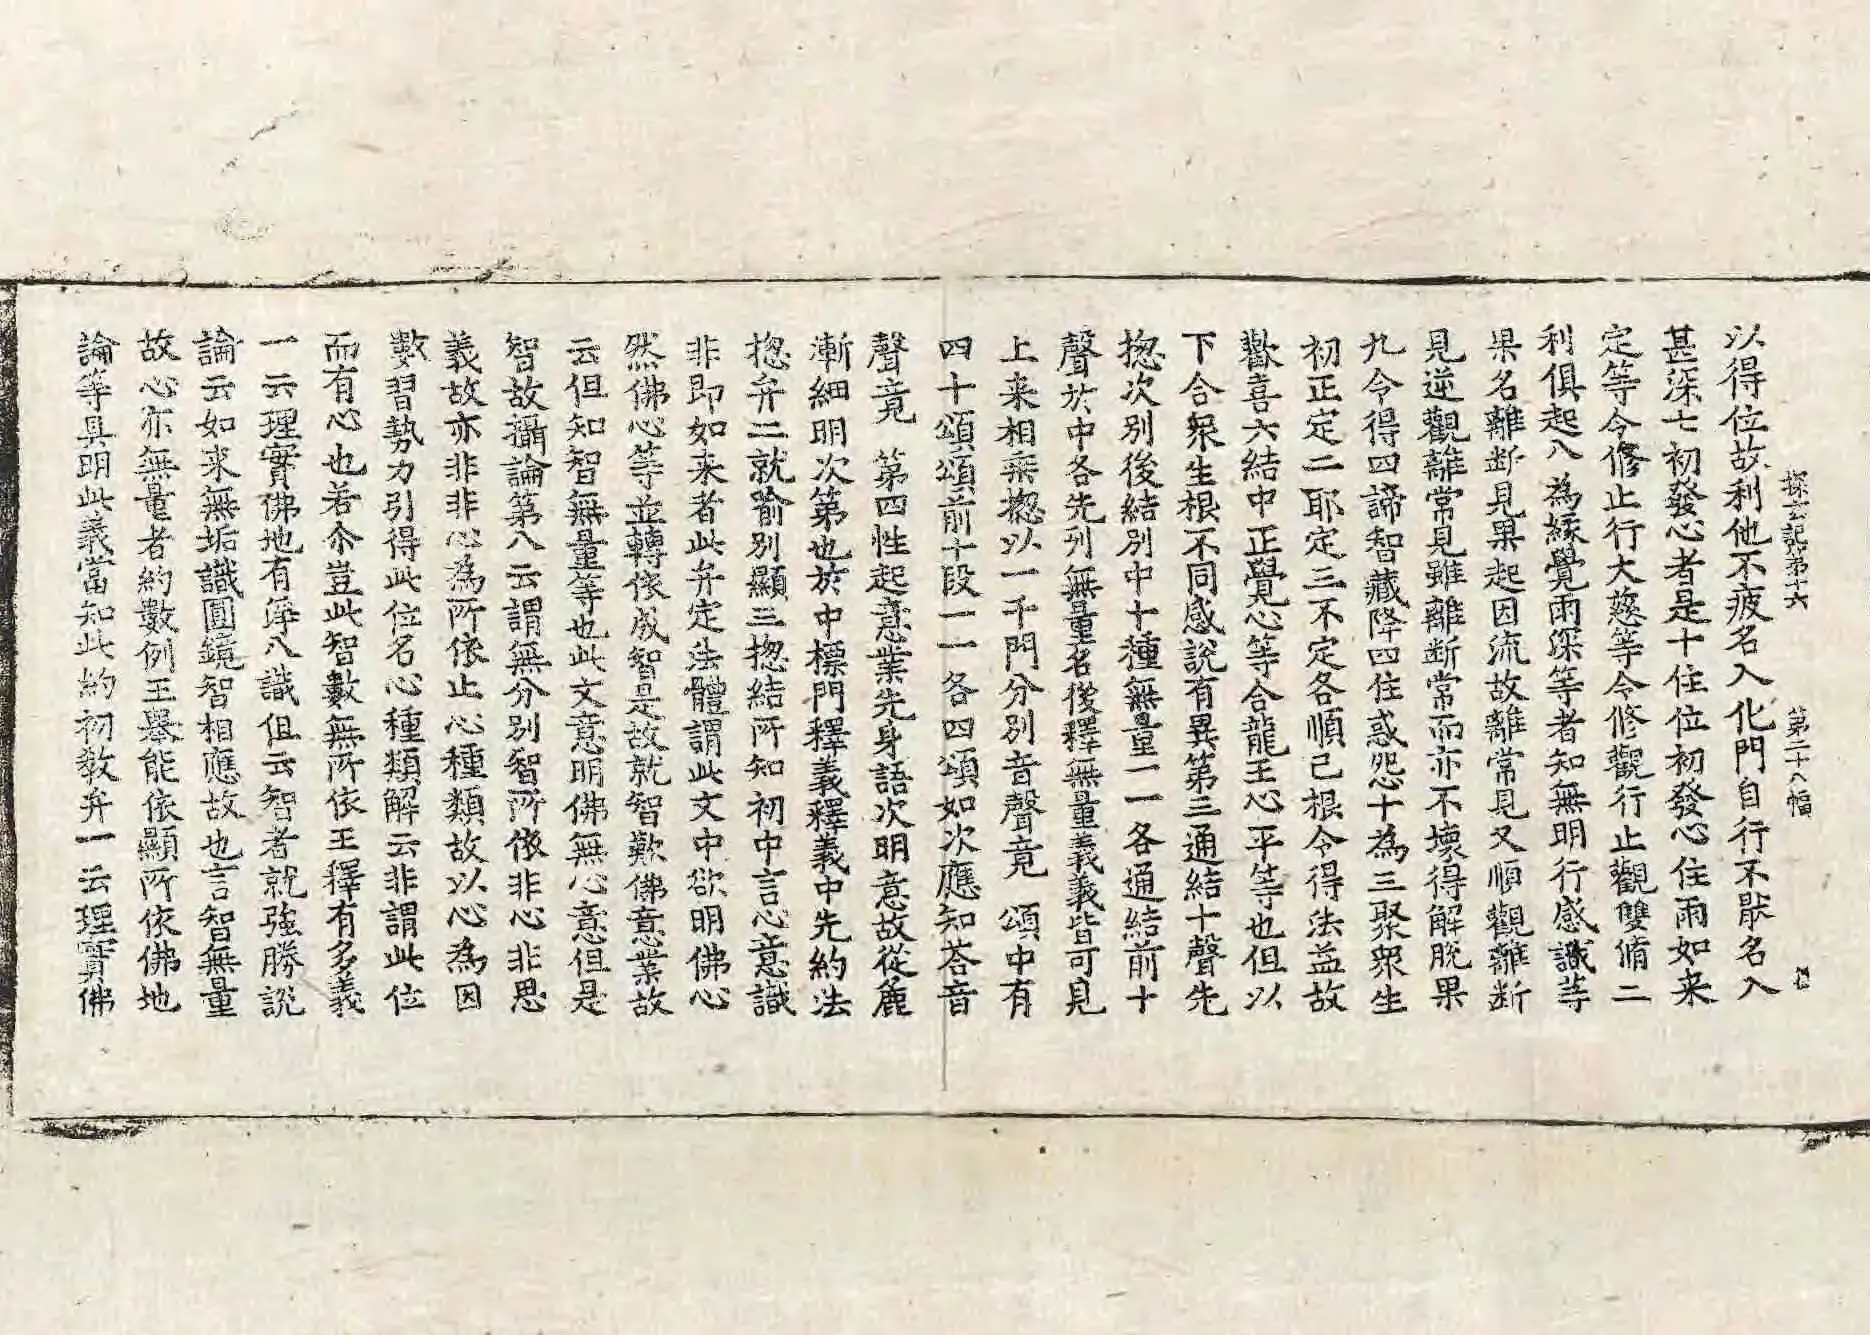 探玄記第十六 第二十八幅
以得位故利他不疲名入化門自行不猒名入
甚深七初發心者是十住位初發心住雨如来
定等令修止行大慈等令修觀行止觀雙脩二
利俱起八為緣覺雨深等者知無明行感識等
果名離断見果起因流故離常見又順觀離断
見逆觀離常見雖離断常而亦不壞得解脫果
九令得四諦智藏降四住惑怨十為三聚衆生
初正定二耶定三不定各順己根令得法益故
歡喜六結中正覺心等合龍王心平等也但以
下合衆生根不同感說有異第三通結十聲先
揔次別後結別中十種無量一一各通結前十
聲於中各先列無量名後釋無量義義皆可見
上来相乘揔以一千門分別音聲竟 頌中有
四十頌頌前十段一一各四頌如次應知荅音
聲竟 第四性起意業先身語次明意故從麁
漸細明次第也於中標門釋義釋義中先約法
揔弁二就喻別顯三揔結所知初中言心意識
非即如来者此弁定法體謂此文中欲明佛心
然佛心等並轉依成智是故就智歎佛意業故
云但知智無量等也此文意明佛無心意但是
智故攝論第八云謂無分別智所依非心非思
義故亦非非心為所依止心種類故以心為因
數習勢力引得此位名心種類解云非謂此位
而有心也若尒豈此智數無所依王釋有多義
一云理實佛地有淨八識但云智者就強勝說
論云如来無垢識圓鏡智相應故也言智無量
故心亦無量者約數例王舉能依顯所依佛地
論等具明此義當知此約初教弁一云理實佛